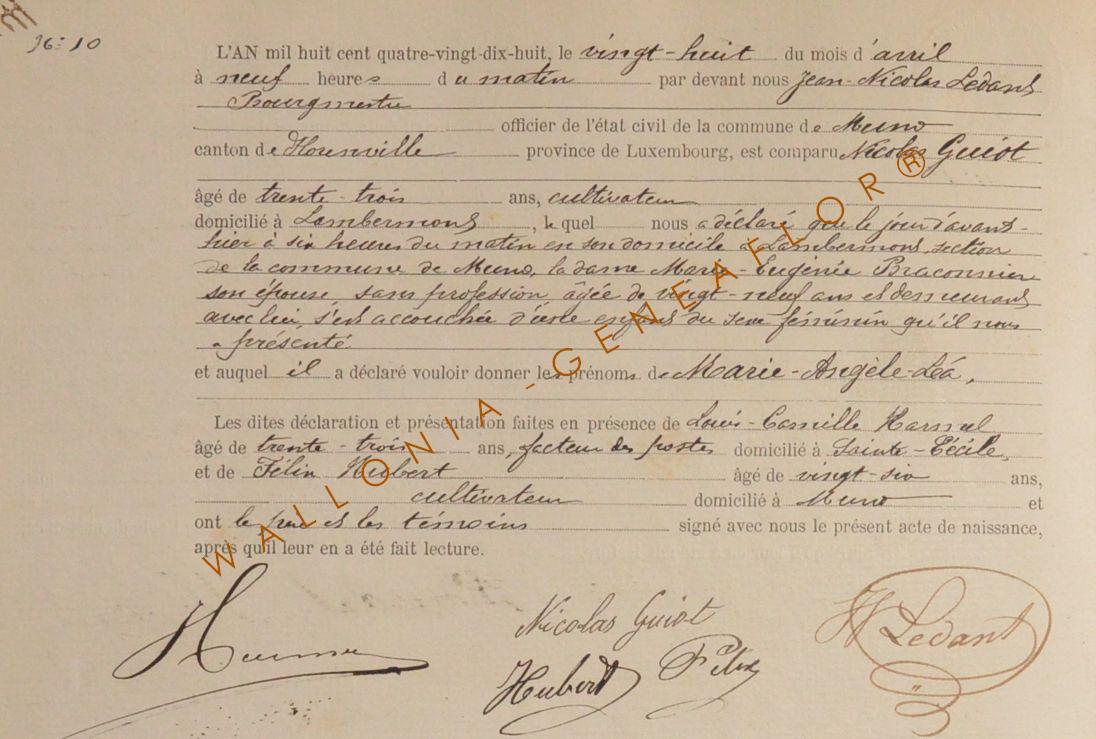 N°: 10
L'AN mil huit cent quatre-vingt-dix-huit, le vingt-huit du mois d'avril
à neuf heures du matin par devant nous Jean-Nicolas Ledant
Bourgmestre
officier de l'état civil de la commune de Muno
canton de Florenville province de Luxembourg, est comparu Nicolas Guiot
âgé de trente-trois ans, cultivateur
domicilié à Lambermont, lequel nous a déclaré que le jour d'avant-
hier à six heures du matin en son domicile à Lambermont, section
de la commune de Muno, la dame Marie-Eugénie Braconnier
son épouse, sans profession, âgée de vingt-neuf ans et demeurant
avec lui, s'est accouchée d'un enfant du sexe féminin qu'il nous
a présenté
et auquel il a déclaré vouloir donner les prénoms de Marie-Angèle-Léa,
Les dites déclaration et présentation faites en présence de Louis-Camille
âgé de trente-trois ans, facteur des postes domicilié à Sainte-Cécile,
et de Félix Hubert âgé de vingt-six ans,
cultivateur domicilié à Muno et
ont le père et les témoins signé avec nous le présent acte de naissance,
après qu'il leur en a été fait lecture.
WALLONIA-GENEAFLOR®
Nicolas Guiot
Hubert Félix
Ledant